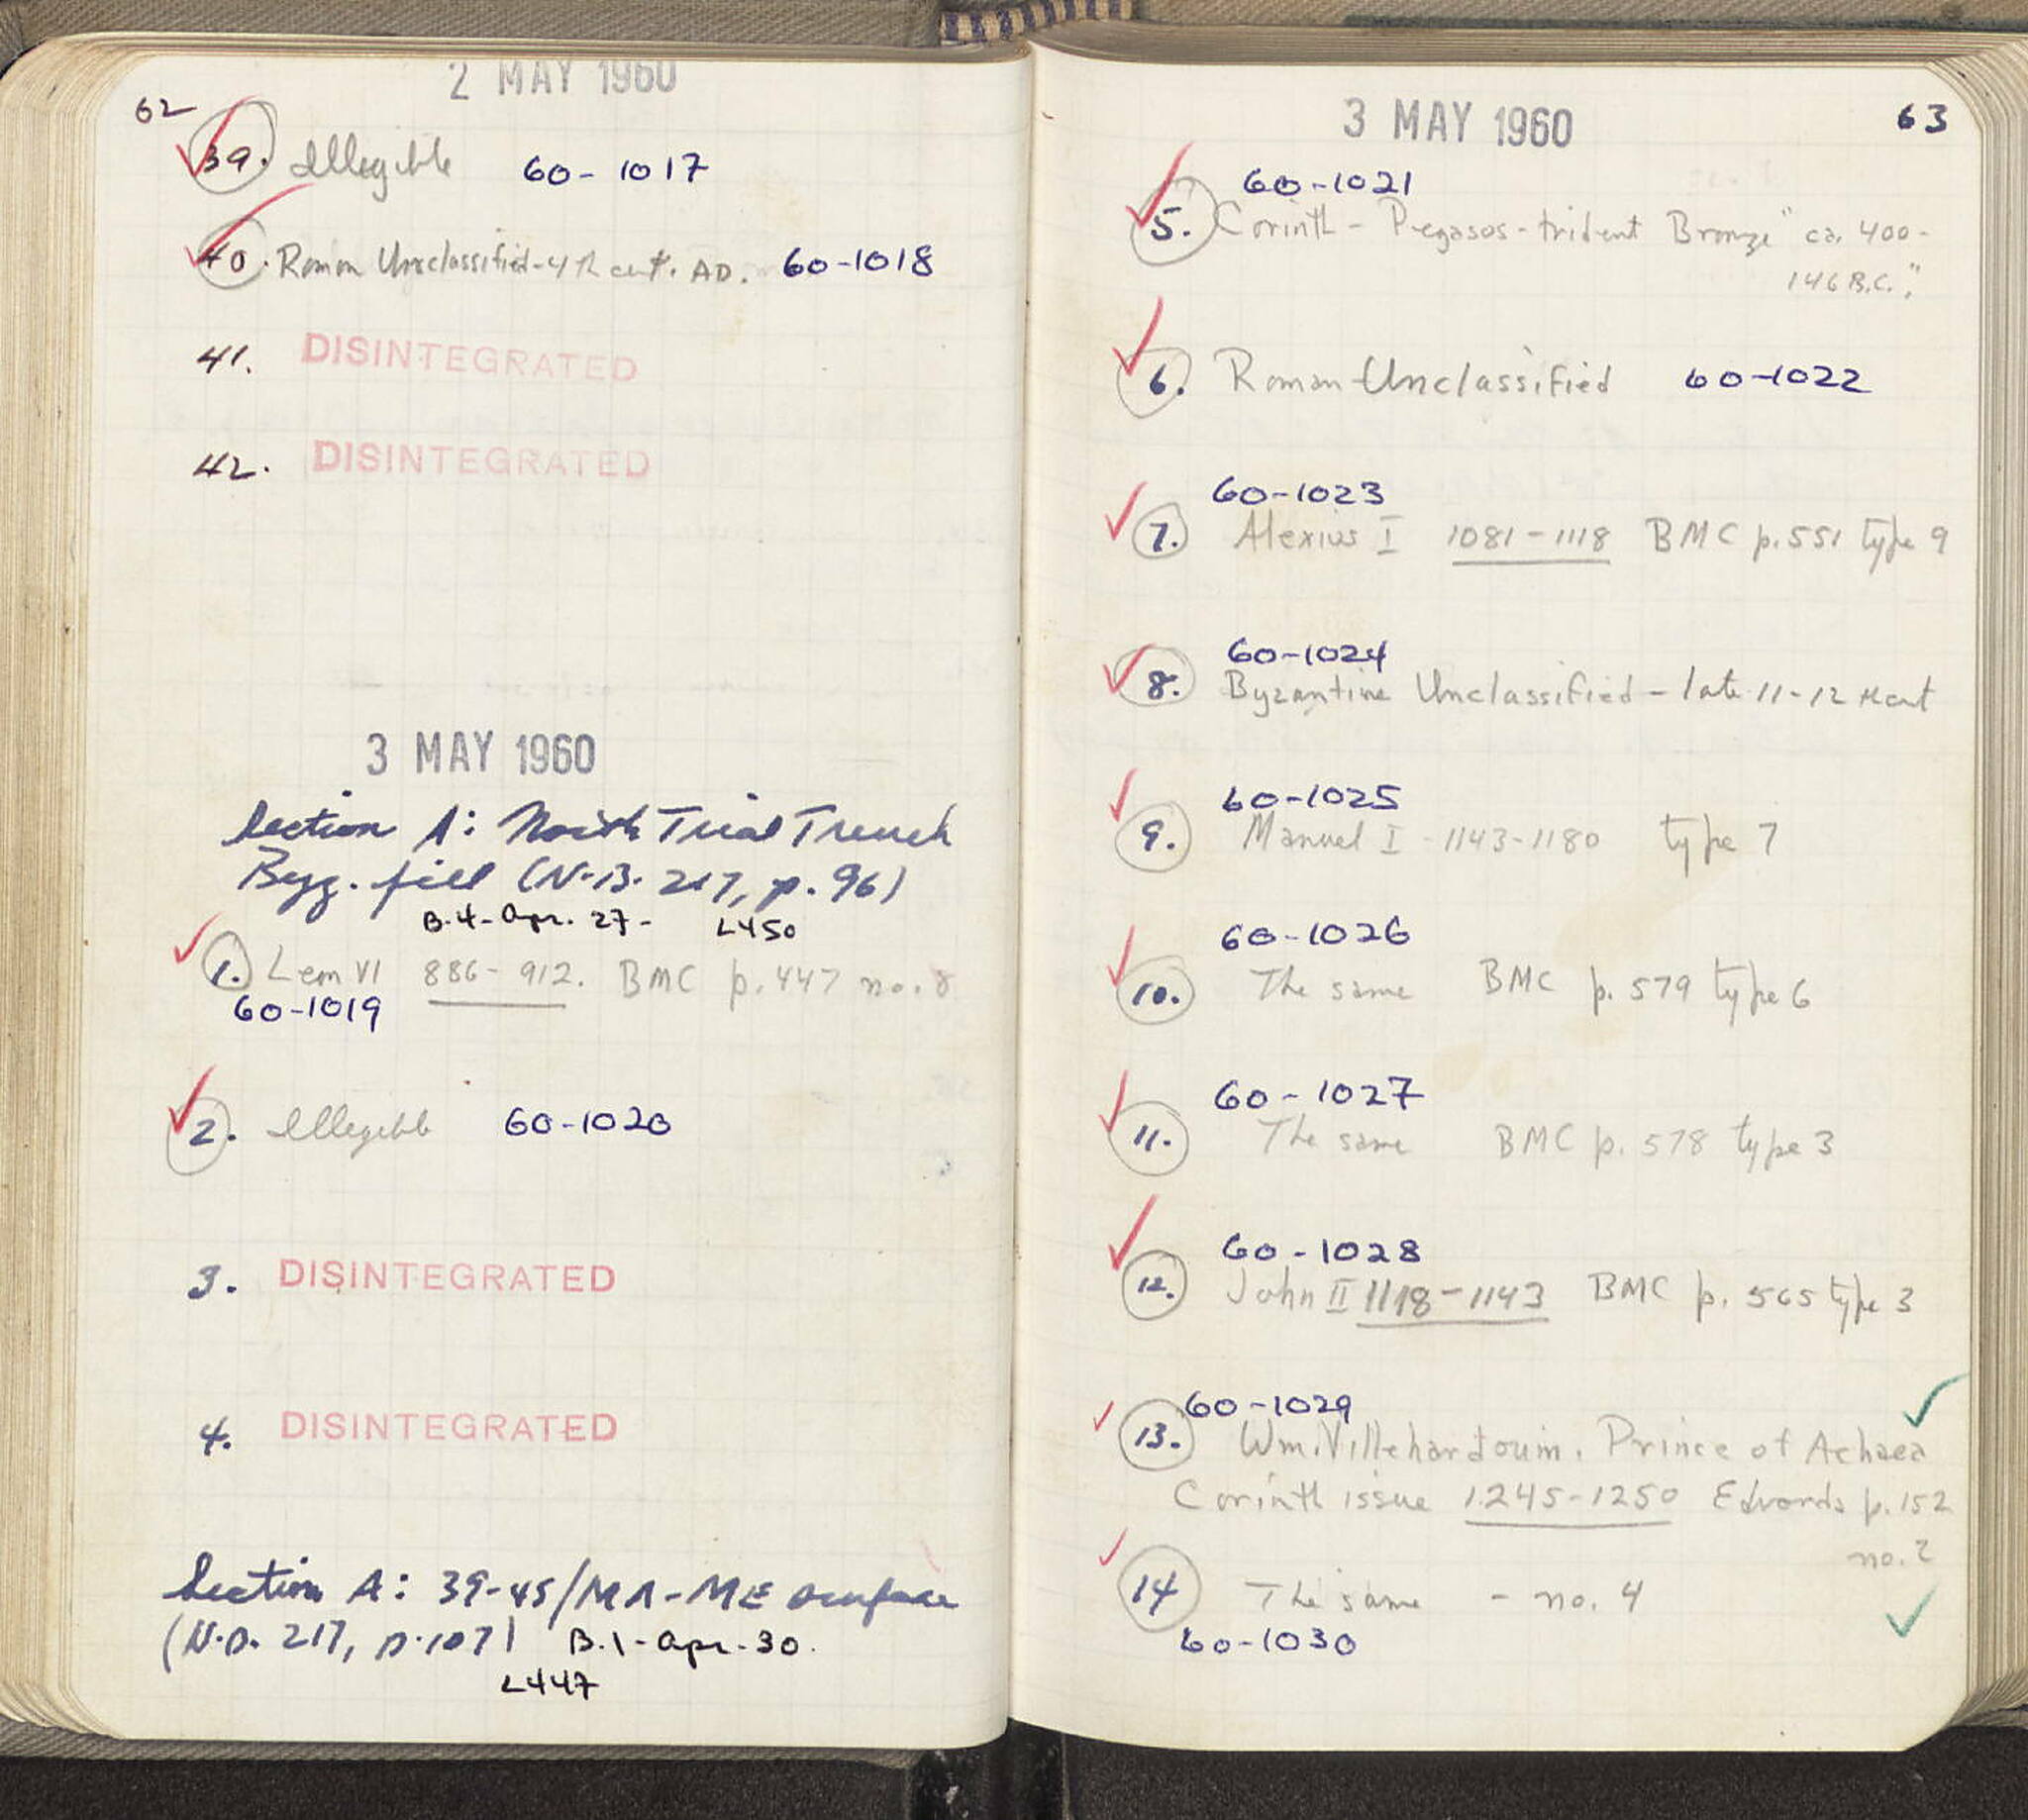 2 MAY 1960
62
39. Illegible 60-1017
40. Roman Unclassified-4th cent. AD. 60-1018
41. DISINTEGRATED
42. DISINTEGRATED
3 MAY 1960
Section A: North Trial Trench
Byz. fill (N.B. 217, p. 96)
B.4-Apr. 27- L450
1. Leon VI 886-912. BMC p.447 no. 8
60-1019
2. Illegible 60-1020
3. DISINTEGRATED
4. DISINTEGRATED
Section A: 39-45/MA-ME surface
(N.B. 217, p.107) B.1-Apr.-30.
L447
3 MAY 1960
63
60-1021
5. Corinth - Pegasos-trident Bronze "ca. 400-
146 B.C."
6. Roman-Unclassified 60-1022
60-1023
7. Alexius I 1081-1118 BMC p.551 type 9
60-1024
8. Byzantine Unclassified - late 11-12
60-1025
9. Manuel I - 1143-1180 type 7
60-1026
10. The same BMC p. 579 type 6
60-1027
11. The same BMC p. 578 type 3
60-1028
12. John II 1118-1143 BMC p. 565 type 3
60-1029
13. Wm. Villehardouin. Prince of Achaea
Corinth issue 1245-1250 Edwards p.152
no. 2
14 The same - no. 4
60-1030